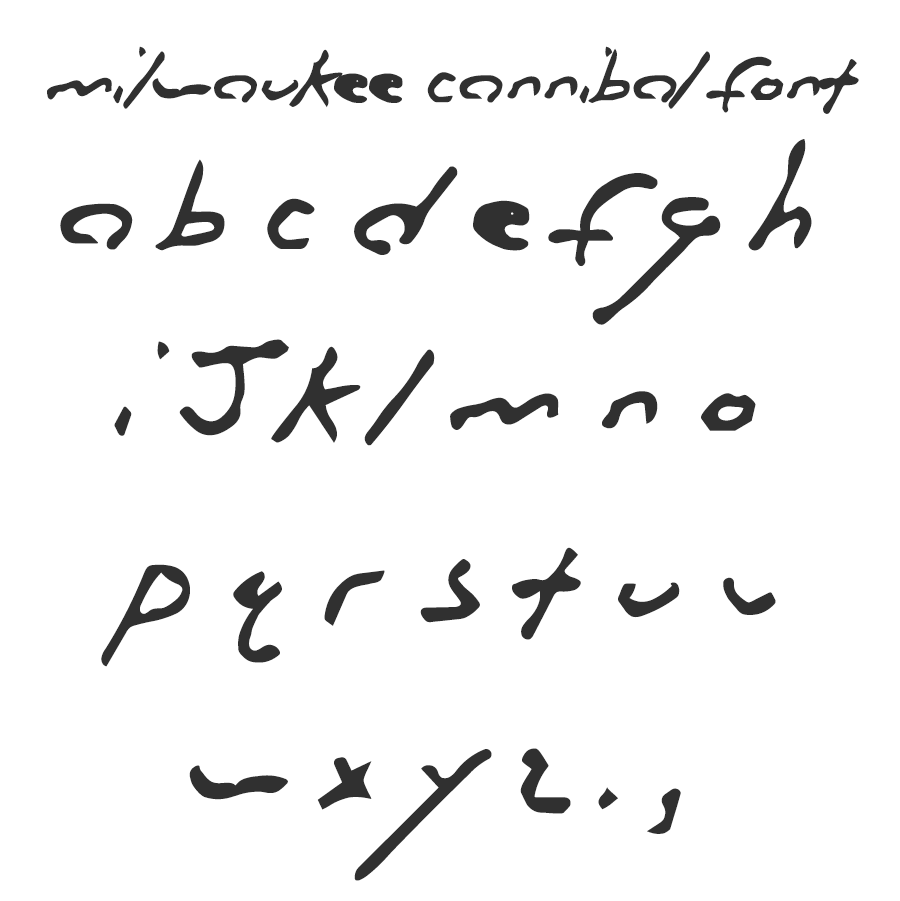 milwaukee cannibal font
a b c d e f g h
i J k l m n o
p q r s t u v
w x y z . ,